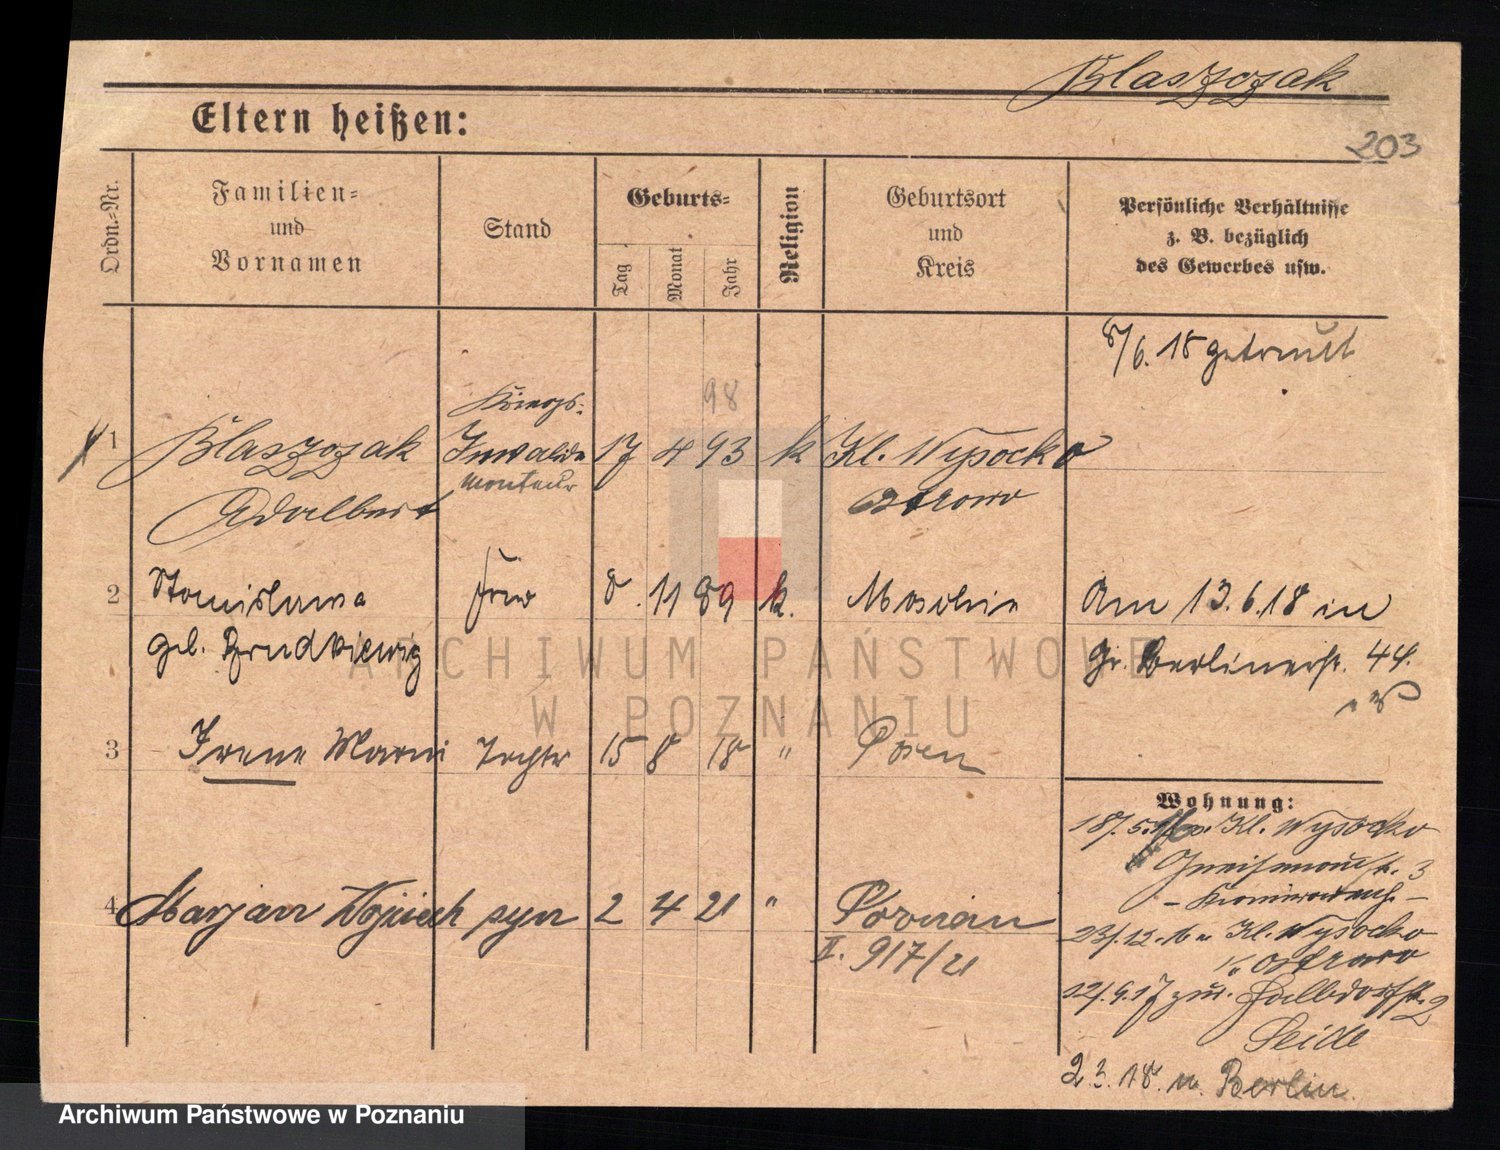 Blaszczak
Eltern heißen:
203
Ordn.=Nr.
Familien=
und
Vornamen
Stand
Geburts=
Tag
Monat
Jahr
Religion
Geburtsort
und
Kreis
Persönliche Verhältnisse
z. B. bezüglich
des Gewerbes usw.
8/6. 18 getraut
98
Kriegs-
1 Blaszczak Invalide 17 4 93 k Kl. Wysocko
monteur
Adalbert Ostrowo
2 Stanislawa Frau 8. 11 89 k. Moschin Am 13.6.18 in
geb. Gr. Berlinerstr. 44.
3 Irene Maria Tochter 15 8 18 " Posen
Wohnung:
18/. 5. Kl. Wysocko
Gneisenaustr. 3
4 Marjan Wojciech syn 2 4 21 " Poznań
II. 917/21
23/. 12. Kl. Wysocko
Ostrowo
12/. 9. 17 2
Seide
2 3. 18. n. Berlin.
ARCHIWUM PAŃSTWOWE
W POZNANIU
Archiwum Państwowe w Poznaniu